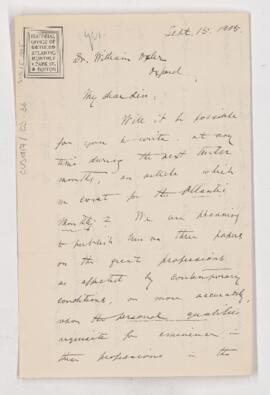 EDITORIAL
OFFICE OF
THE
ATLANTIC
MONTHLY
PARK ST.
BOSTON
yes.
Sept. 15. 1905.
Dr. William Osler
Oxford,
My dear Sir:
Will it be possible
for you to write, at any
time during the next twelve
months, an article which
we covet for the Atlantic
Monthly? We are planning
to publish two or three papers
on the great professions
as affected by contemporary
conditions, or more accurately,
upon the personal qualities
requisite for eminence in
these professions in the
CUS417/